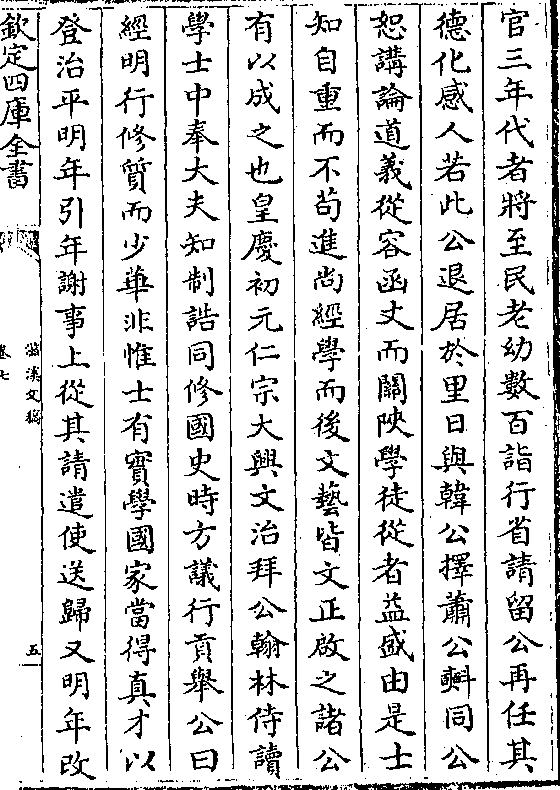 官三年代者將至民老幼數百詣行省請留公再任其
德化感人若此公退居於里日與韓公擇蕭公㪺同公
恕講論道義從容函丈而關陜學徒從者益盛由是士
知自重而不苟進尚經學而後文藝皆文正啟之諸公
有以成之也皇慶初元仁宗大興文治拜公翰林侍讀
學士中奉大夫知制誥同修國史時方議行貢舉公曰
經明行修質而少華非惟士有實學國家當得真才以
登治平明年引年謝事上從其請遣使送歸又明年改
欽定四庫全書
滋溪文稿
卷七
五